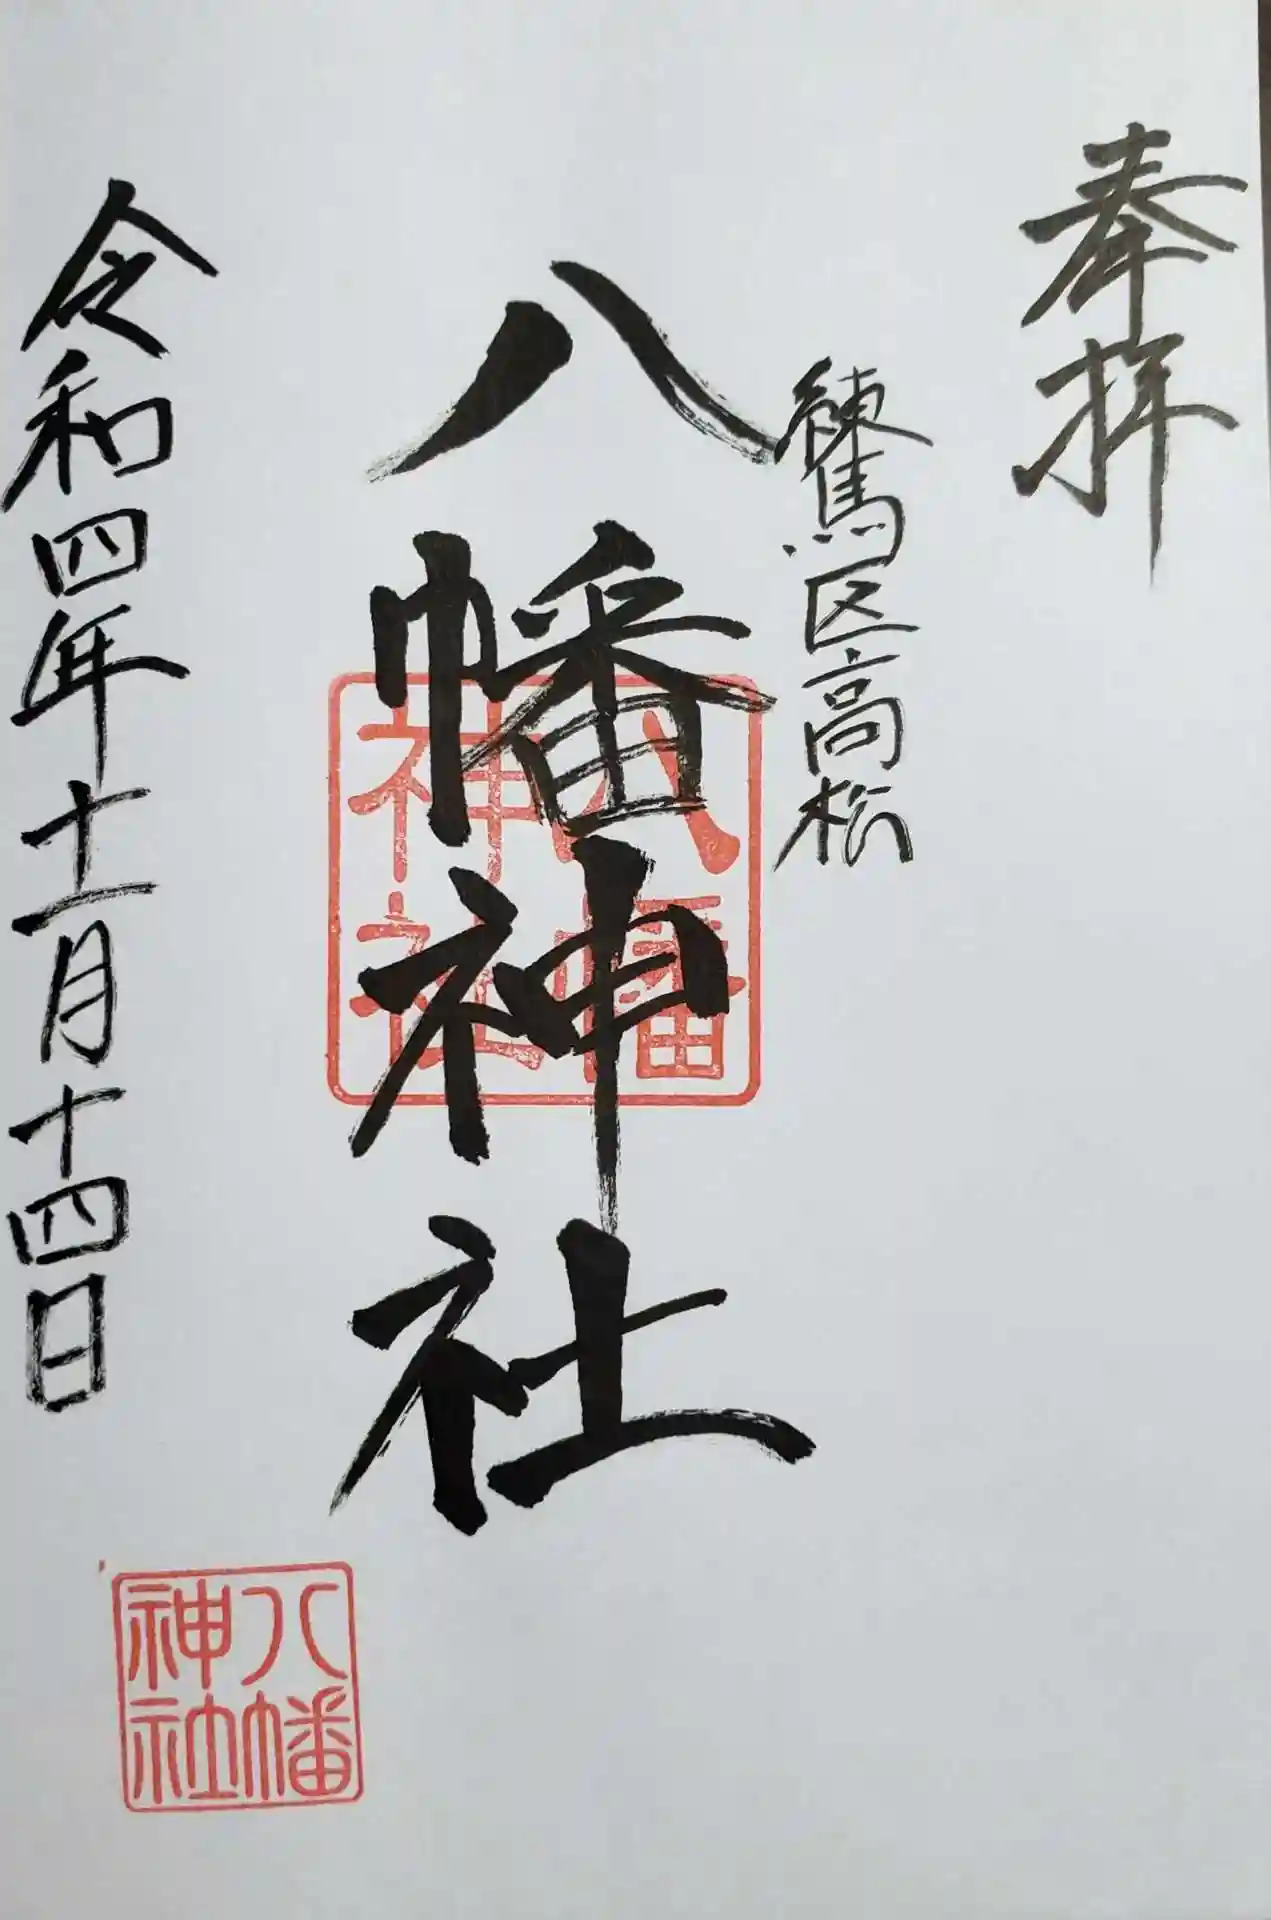 奉拝
練馬区高松
八幡神社
八幡
神社
令和四年十一月十四日
八幡
神社